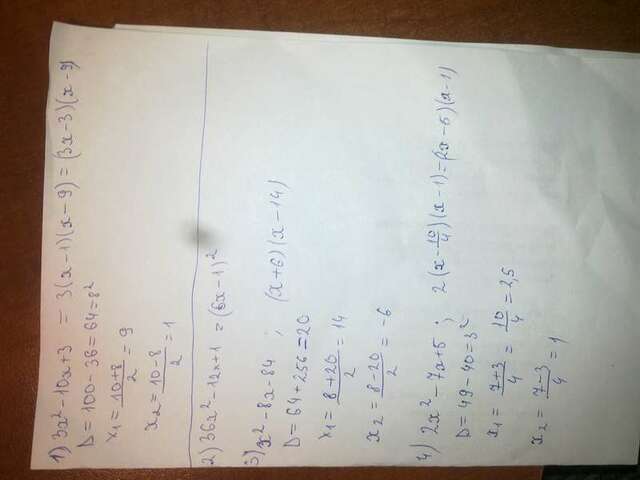 1) 3x²-10x+3 = 3(x-1)(x-9) = (3x-3)(x-9)
D = 100-36=64=8²
x₁ = 10+8/2 = 9
x₂ = 10-8/2 = 1
2) 36x²-12x+1 = (6x-1)²
3) x²-8x-84 ; (x+6)(x-14)
D = 64+256=20
x₁ = 8+20/2 = 14
x₂ = 8-20/2 = -6
4) 2x²-7x+5 ; 2(x-10/4)(x-1)=(2x-5)(x-1)
D = 49-40=3²
x₁ = 7+3/4 = 10/4 = 2,5
x₂ = 7-3/4 = 1